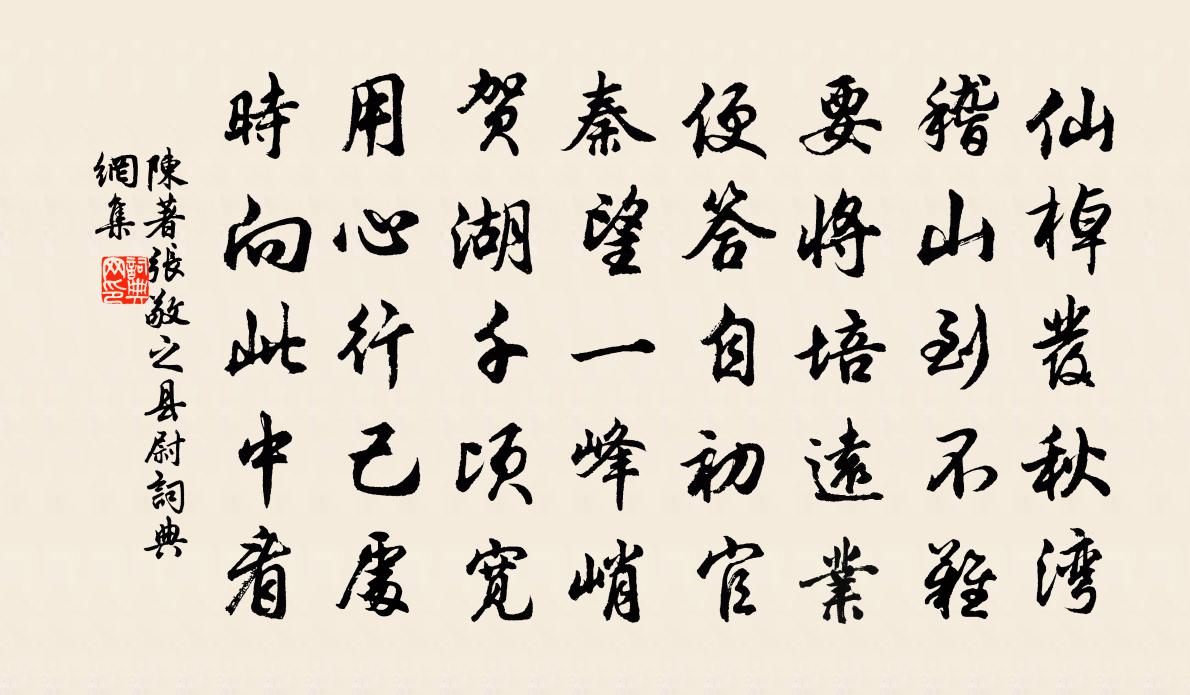 仙棹發秋湾
稽山到不難
要將培遠業
便答自初官
秦望一峰峭
贺湖千顷宽
用心行己處
時向此中看
陳著張敬之县尉詞典
網集
詞典網印